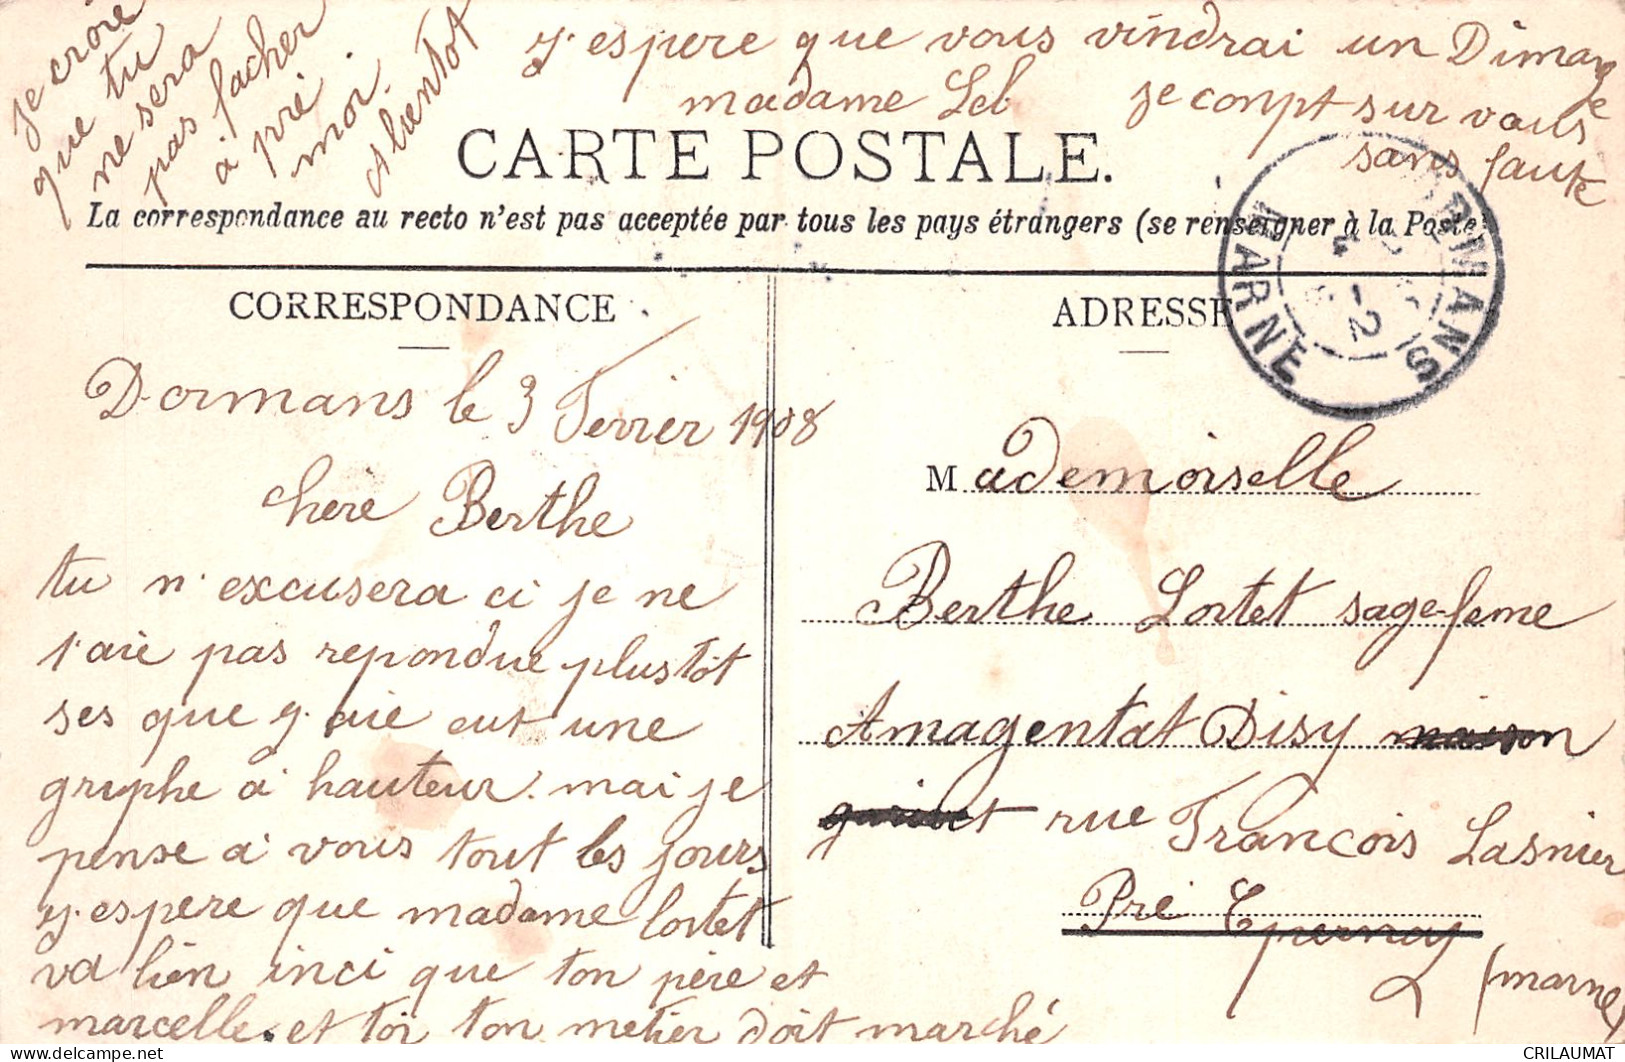 je croie
que tu
ne sera
pas facher
à pré
moi.
a bientot
y. espere que vous vindrai un Dimange
madame Leb je conpt sur vous
sans faute
CARTE POSTALE.
La correspondance au recto n'est pas acceptée par tous les pays étrangers (se renseigner à la Poste)
CORRESPONDANCE
ADRESSE
DORMANS
MARNE
Dormans le 3 Ferrier 1908
chère Berthe
tu n'excusera ci je ne
t'aie pas repondue plustôt
ses que y. aie eut une
gryphe à hauteur. mai je
pense a vous tout les jours
y. espere que madame lortet
va bien inci que ton père et
marcelle. et toi ton metier doit marché
Mademoiselle
Berthe Lortet sage-feme
Amagentat Disy maison
rue Francois Lasnier
Pré Epernay
(marne)
CRILAUMAT